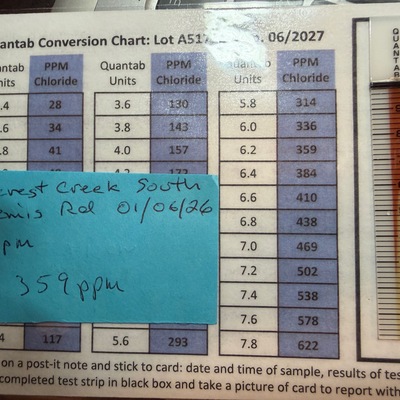 uantab Conversion Chart: Lot A517 06/2027
antab PPM Quantab PPM Quantab PPM
nits Chloride Units Chloride Units Chloride
.4 28 3.6 130 5.8 314
.6 34 3.8 143 6.0 336
.8 41 4.0 157 6.2 359
172 6.4 384
6.6 410
6.8 438
7.0 469
7.2 502
7.4 538
7.6 578
4 117 5.6 293 7.8 622
crest Creek South
Rd 01/06/26
pm
359 ppm
on a post-it note and stick to card: date and time of sample, results of tes
completed test strip in black box and take a picture of card to report with
QUANTAB